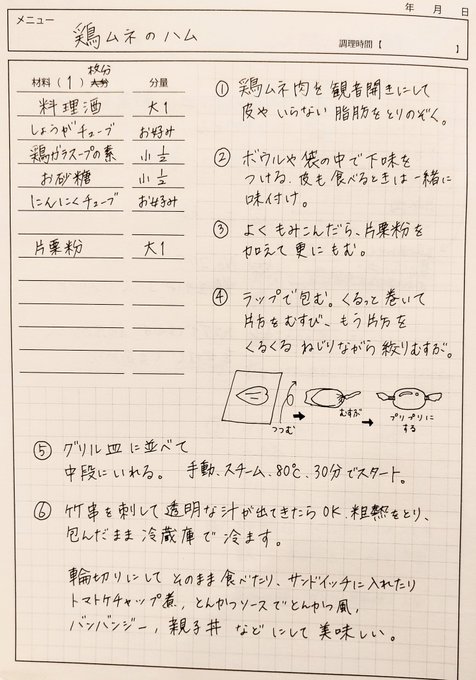 年 月 日
メニュー
鶏ムネのハム
調理時間【 】
材料(1)枚分 分量
人分
料理酒 大1
しょうがチューブ お好み
鶏ガラスープの素 小1/2
お砂糖 小1/2
にんにくチューブ お好み
片栗粉 大1
① 鶏ムネ肉を観音開きにして
皮やいらない脂肪をとりのぞく。
② ボウルや袋の中で下味を
つける、皮も食べるときは一緒に
味付け。
③ よくもみこんだら、片栗粉を
加えて更にもむ。
④ ラップで包む。くるっと巻いて
片方をむすび、もう片方を
くるくるねじりながら絞りむすぶ。
つつむ
むすぶ
プリプリに
する
⑤ グリル皿に並べて
中段にいれる。 手動、スチーム、80℃、30分でスタート。
⑥ 竹串を刺して透明な汁が出てきたらOK、粗熱をとり、
包んだまま冷蔵庫で冷ます。
輪切りにしてそのまま食べたり、サンドイッチに入れたり
トマトケチャップ煮、とんかつソースでとんかつ風、
バンバンジー、親子丼などにして美味しい。